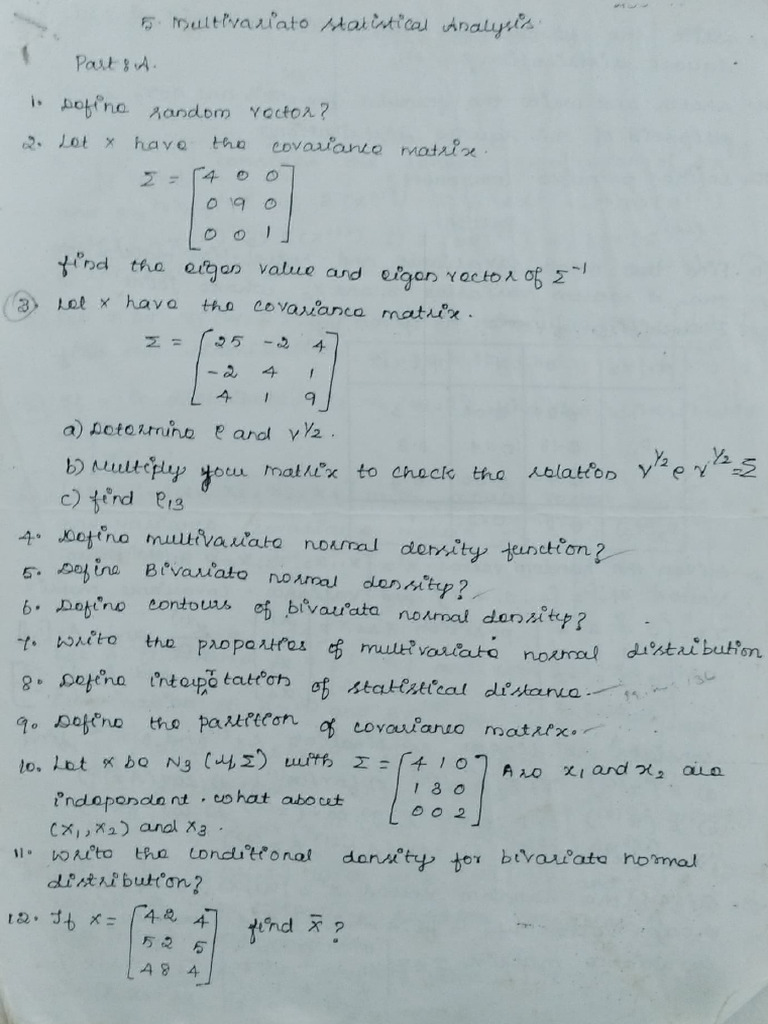 5. Multivariate Statistical Analysis.
Part 8 A.
1. Define random vector?
2. Let x have the covariance matrix.
Σ = [4 0 0
0 9 0
0 0 1]
find the eigen value and eigen vector of Σ⁻¹
3. Let x have the covariance matrix.
Σ = [25 -2 4
-2 4 1
4 1 9]
a) Determine ρ and v^1/2.
b) Multiply your matrix to check the relation v^1/2 ρ v^1/2 = Σ
c) find ρ13
4. Define multivariate normal density function?
5. Define Bivariate normal density?
6. Define contours of bivariate normal density?
7. Write the properties of multivariate normal distribution
8. Define interptetation of statistical distance.
9. Define the partition of covariance matrix.
10. Let x be N3 (μ, Σ) with Σ = [4 1 0
1 3 0
0 0 2] Are x1 and x2 are
independent. what about
(x1, x2) and x3.
11. Write the conditional density for bivariate normal
distribution?
12. If x = [42 4
52 5
48 4] find x̄ ?